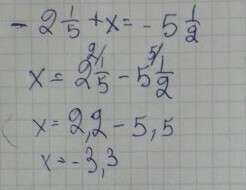 - 2 1/5 + x = - 5 1/2
x = 2 2/ 1/5 - 5 5/ 1/2
x = 2,2 - 5,5
x = -3,3